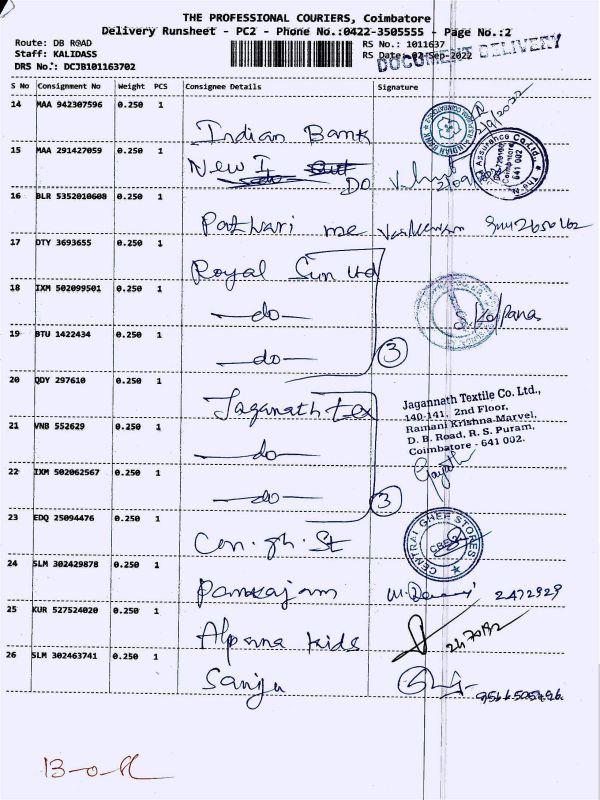 THE PROFESSIONAL COURIERS, Coimbatore
Delivery Runsheet - PC2 - Phone No.:0422-3505555 - Page No.:2
Route: DB ROAD
RS No.: 1011637
Staff: KALIDASS
RS Date: 02-Sep-2022
DRS No.: DCJB101163702
DOCUMENT DELIVERY
S No Consignment No Weight PCS Consignee Details Signature
14 MAA 942307596 0.250 1
Indian Bank 2/9/2022
15 MAA 291427059 0.250 1
New I
DO
Assurance Co.Ltd.
Coimbatore
641 002
16 BLR 5352010608 0.250 1
Pathari me
17 DTY 3693655 0.250 1
Royal Sun Ltd
18 IXM 502099501 0.250 1
-do- S. Kalpana
19 BTU 1422434 0.250 1
-do- 3
20 QDY 297610 0.250 1
Jaganath tex
Jagannath Textile Co. Ltd.,
140-141, 2nd Floor,
Ramani Krishna Marvel,
D. B. Road, R. S. Puram,
Coimbatore - 641 002.
21 VNB 552629 0.250 1
-do-
Gayathri
22 IXM 502062567 0.250 1
-do- 3
23 EDQ 25094476 0.250 1
Cen. gh. St
CENTRAL GHEE STORES
CBE-2
24 SLM 302429878 0.250 1
Pankajam 2472929
25 KUR 527524020 0.250 1
Alpenna kids
26 SLM 302463741 0.250 1
Sanju
13-0-